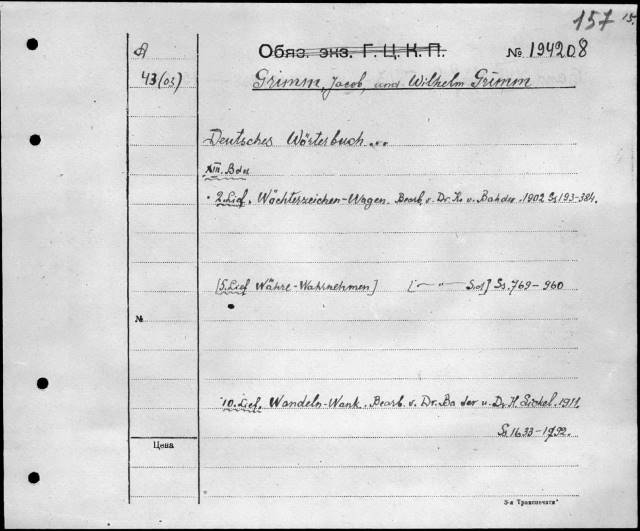 157 15.
A
Обяз. экз. Г. Ц. К. П.
№ 194208
43(03)
Grimm, Jacob, und Wilhelm Grimm
Deutsches Wörterbuch...
XIII. Bdes
2. Lief. Wächterzeichen-Wagen. Bearb. v. Dr. K. v. Bahder. 1902 Ss 193-384.
[5. Lief Währe-Wahrnehmen] [— " — S.a] Ss. 769-960
№
10. Lief. Wandeln-Wank. Bearb. v. Dr. Ba der u. Dr. H. Sickel. 1911.
Ss 1633-1792.
Цена
3-я Транспечати